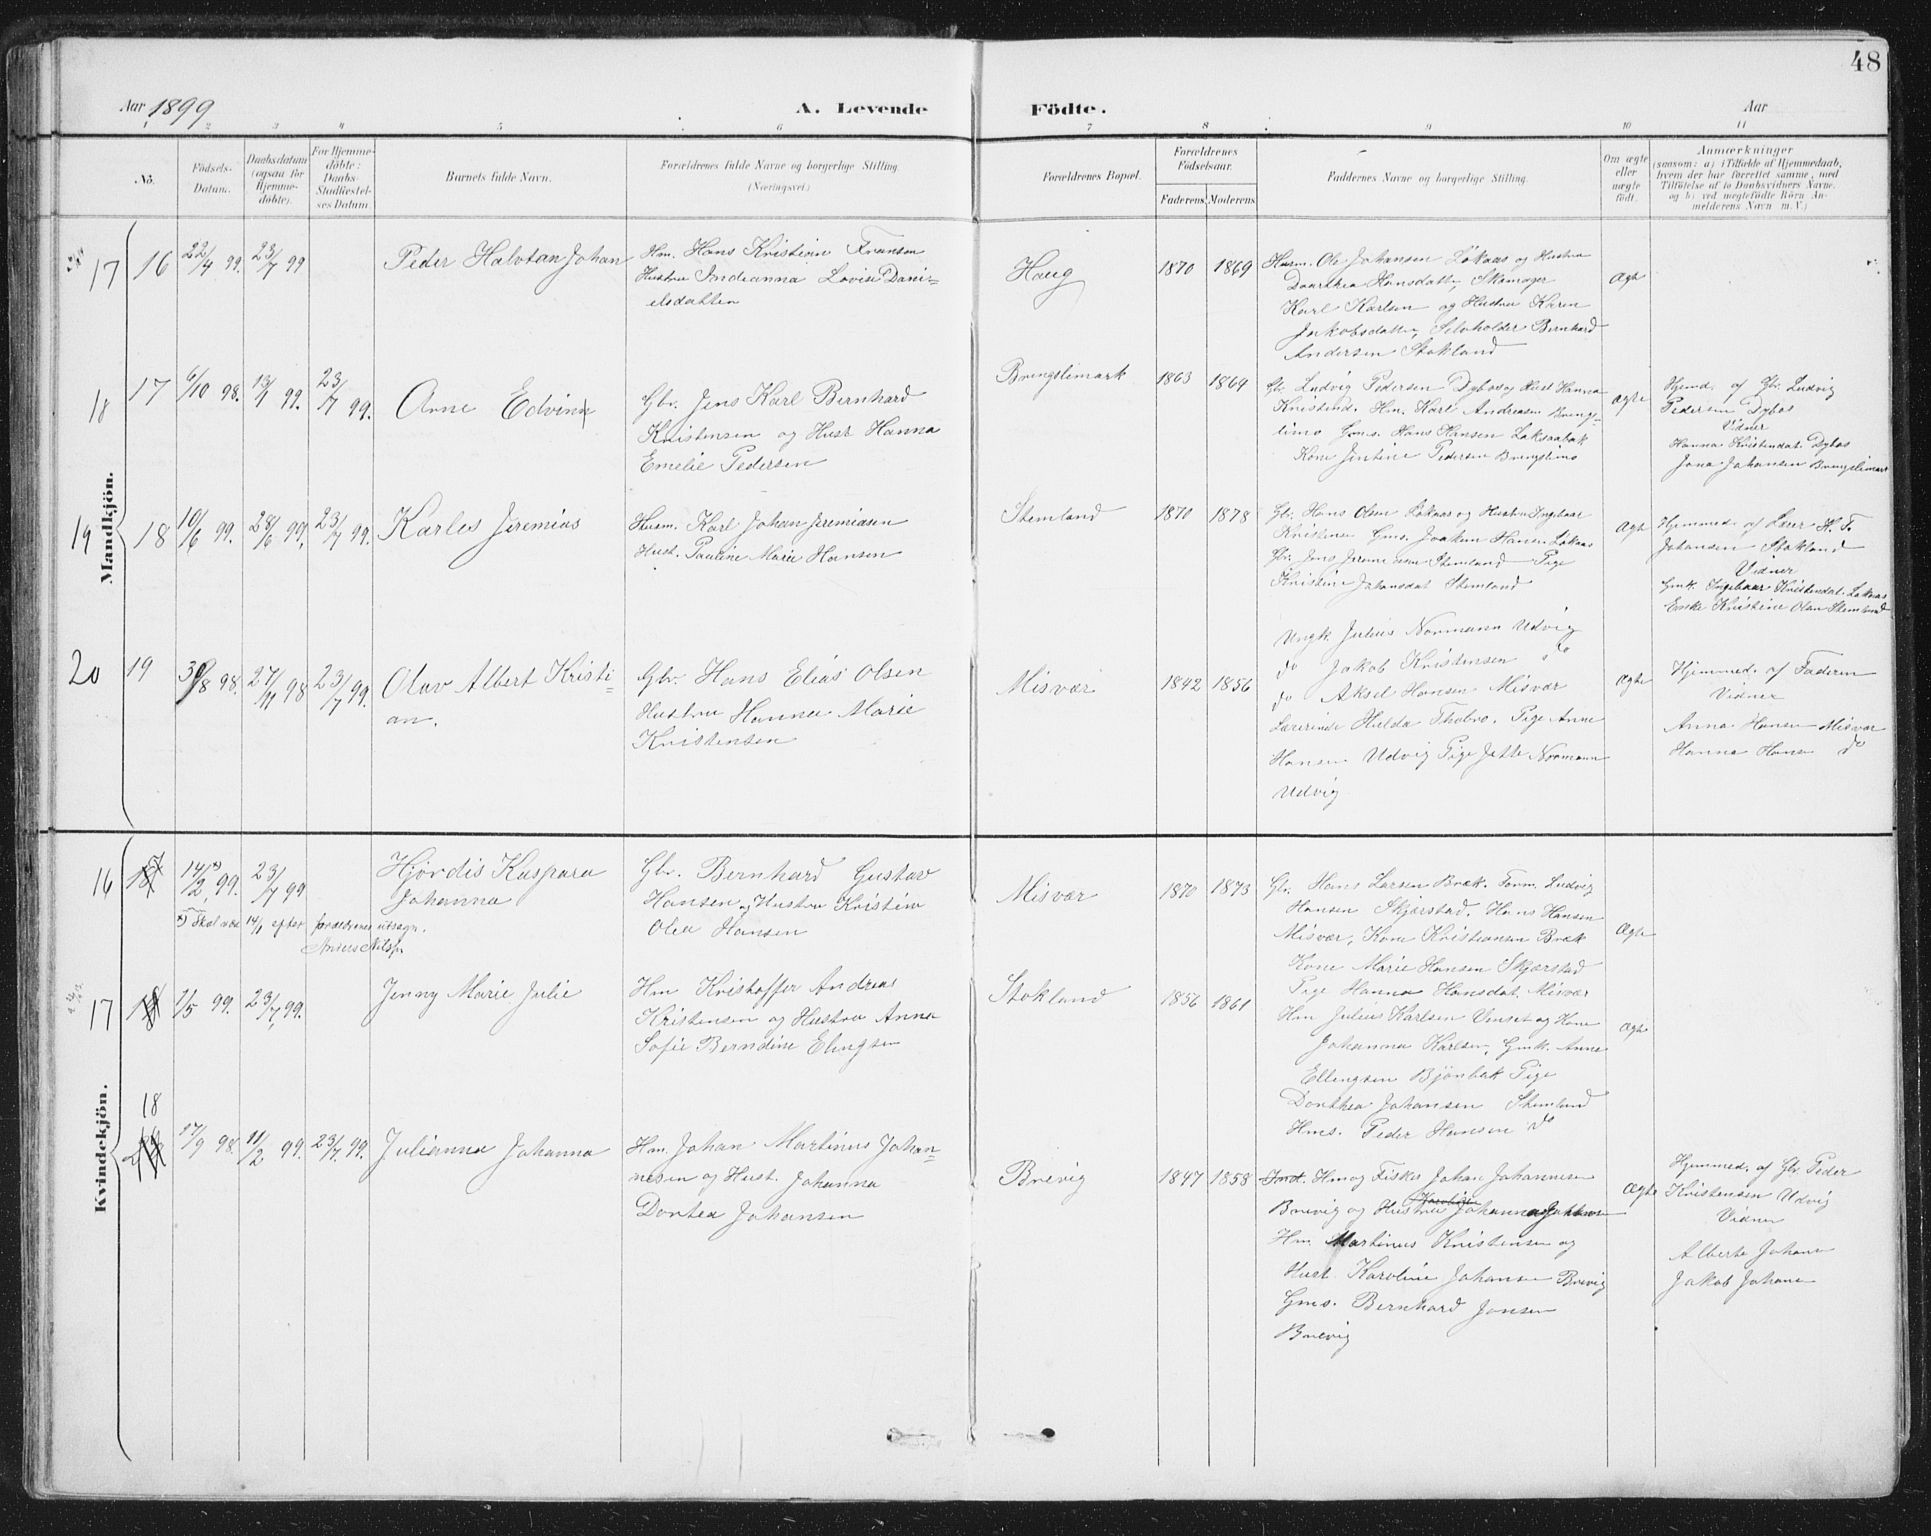 48
Aar 1899
A. Levende
Födte.
Aar
1 2 3 4 5 6 7 8 9 10 11
No.
Födsels-
Datum.
Daabsdatum
(ogsaa for
Hjemme-
döbte).
For Hjemme-
döbte:
Daabs-
Stadfæstel-
ses Datum.
Barnets fulde Navn.
Forældrenes fulde Navne og borgerlige Stilling
(Næringsvei)
Forældrenes Bopæl.
Forældrenes
Födselsaar.
Faderens Moderens
Faddernes Navne og borgerlige Stilling.
Om ægte
eller
uægte
födt.
Anmærkninger
(saasom: a) i Tilfælde af Hjemmedaab,
hvem der har forrettet samme, med
Tilföielse af to Daabsvidners Navne.
og b) ved uegtefödte Börn An-
melderens Navn m. V.)
Mandkjön.
17 16 22/4 99. 23/7 99
Peder Halvtan Johan
Hm. Hans Kristian Fransen
Hustru Indianna Lovise Dani-
elsdatten
Haug
1870 1869
Husm. Ole Johansen Løkaas og Hustru
Daarthea Hansdatt, Skomager
Karl Karlsen og Hustru Karen
Jakobsdatte, Selvholder Bernhard
Andersen Stokland
Ægte
18 17 6/10 98. 13/1 99. 23/7 99.
Arne Edvin
Gbr. Jens Karl Bernhard
Kristensen og Hust Hanna
Emelie Pedersen
Brengslimark
1863 1869
Gb Ludvig Pedersen Dybos og Hust Hanna
Kristend. Hm. Karl Andreasen Breng-
slimo Gms. Hans Hansen Løksaabak
Kone Jentine Pedersen Brengslimo
ægte
Hjmd. af Gbr. Ludvig
Pedersen Dybos
Vidner
Hanna Kristendat. Dybos
Jona Johansen Brengslimark
19 18 10/6 99. 28/6 99. 23/7 99.
Karles Jeremias
Husm. Karl Johan Jeremiasen
Hust. Pauline Marie Hansen
Stemland
1870 1878
Gb. Hans Olsen Løkaas og Hustru Ingebaar
Kristense Gms. Joakim Hansen Løkaas
Gbr. Jens Jeremiasen Stemland Pige
Kristine Johansdat Stemland
Ægte
Hjemmed. af Lærer H. F.
Johansen Stokland
Vidner
Gmk. Ingebaar Kristendat. Løkaas
Enke Kristine Olsen Stemland
20 19 98. 27/11 98 23/7 99.
Olav Albert Kristi-
an.
Gbr. Hans Elias Olsen
Hustru Hanna Marie
Kristensen
Misvær
1842 1856
Ungk. Julius Normann Udvig
do Jakob Kristensen do
do Aksel Hansen Misvær
Lærerinde Hulda Thobro. Pige Anne
Hansen Udvig Pige Jette Normann
Udvig
Ægte
Hjemmed. af Faderen
Vidner
Anna Hanse Misvær
Hanna Hanse do
Kvindekjön.
16 14/2 *) 99. 23/7 99
Hjørdis Kaspara
Johanna
*) Skal være 14/1 efter forældrenes utsagn.
Gbr. Bernhard Gustav
Hansen og Hustru Kristine
Olea Hansen
Misvær
1870 1873
Gb. Hans Larsen Bræk. Form. Ludvig
Hansen Skjærstad. Hans Hansen
Misvær, Kone Kristiansen Bræk
Kone Marie Hansen Skjærstad
Pige Hanna Hansdat. Misvær
Ægte
17 1/5 99. 23/7 99.
Jenny Marie Julie
Hm Kristoffer Andreas
Kristensen og Hustru Anna
Sofie Berndine Elingsen
Stokland
1856 1861
Hm Julius Karlsen Venset og Kone
Johanna Karlsen, Gmk. Anne
Ellengsen Bjønbak Pige
Dorthea Johansen Stemland
Hms. Peder Hansen do
Ægte
18 17/9 98. 11/2 99. 23/7 99.
Julianna Johanna
Hm. Johan Martinus Johan-
nesen og Hust. Johanna
Dortea Johansen
Brevig
1847 1858
Ind. Hm og Fisker Johan Johannesen
Brevig og Hustru Johanna
Hm. Martinus Kristensen og
Hust. Karoline Johansen Brevig
Gms. Bernhard Jonsen
Brevig
Ægte
Hjemmed. af Gbr. Peder
Kristensen Udvig
Vidner
Alberte Johans
Jakob Johans